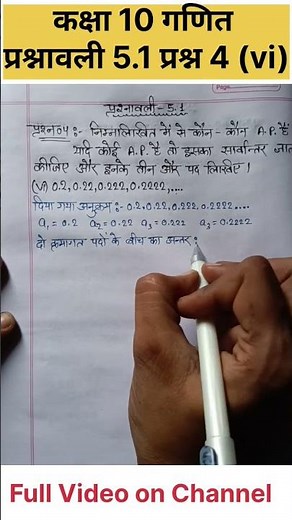 कक्षा 10 गणित
प्रश्नावली 5.1 प्रश्न 4 (vi)
Page
प्रश्नावली - 5.1
प्रश्न 04 :- निम्नलिखित में से कौन - कौन A.P. हैं
यदि कोई A.P. है तो इसका सार्वान्तर ज्ञात
कीजिए और इनके तीन और पद लिखिए।
(V) 0.2, 0.22, 0.222, 0.2222, ....
दिया गया अनुक्रम :- 0.2, 0.22, 0.222, 0.2222....
a₁ = 0.2 a₂ = 0.22 a₃ = 0.222 a₃ = 0.2222
दो क्रमागत पदों के बीच का अन्तर :
Full Video on Channel